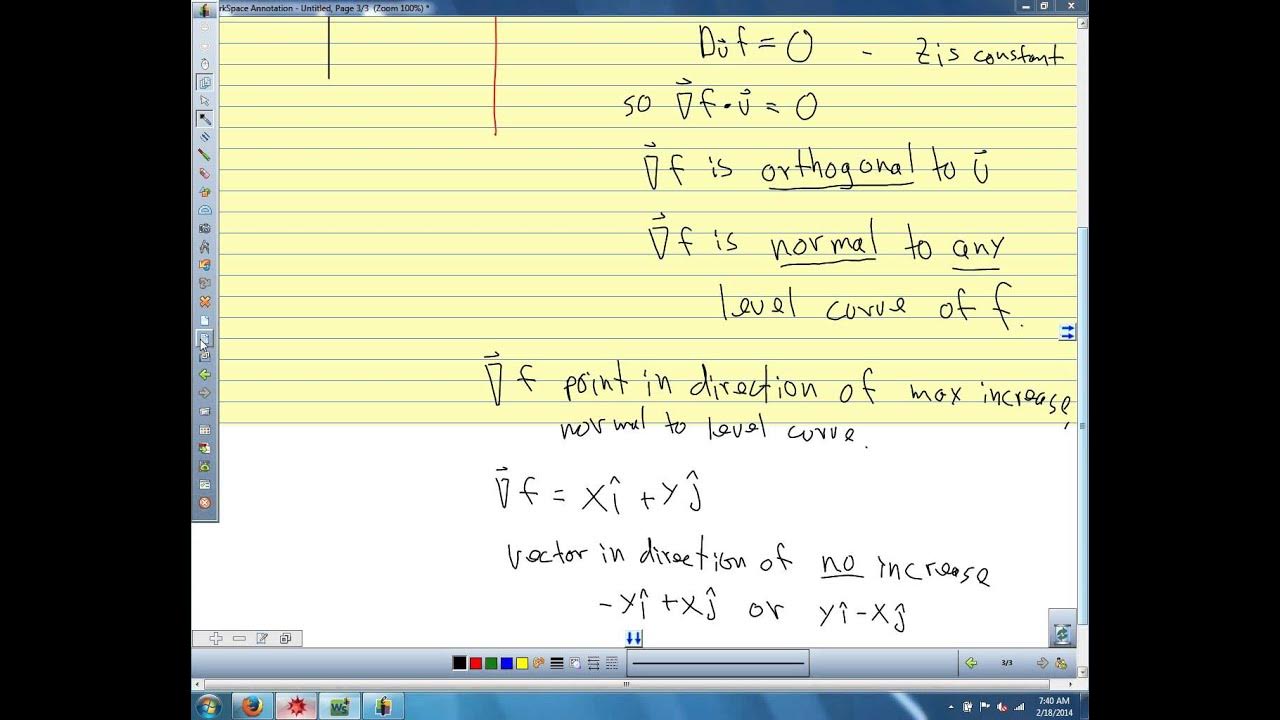 rkSpace Annotation - Untitled, Page 3/3 (Zoom 100%) *
D_u⃗ f = 0 - z is constant
so ∇⃗f · u⃗ = 0
∇⃗f is orthogonal to u⃗
∇⃗f is normal to any
level curve of f.
∇⃗f point in direction of max increase,
normal to level curve.
∇⃗f = xî + yĵ
vector in direction of no increase
-yî + xĵ or yî - xĵ
3/3
7:40 AM
2/18/2014